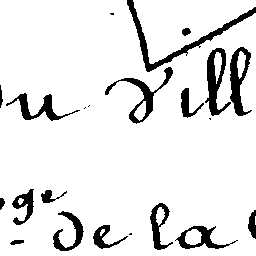 du Vill
ge de la